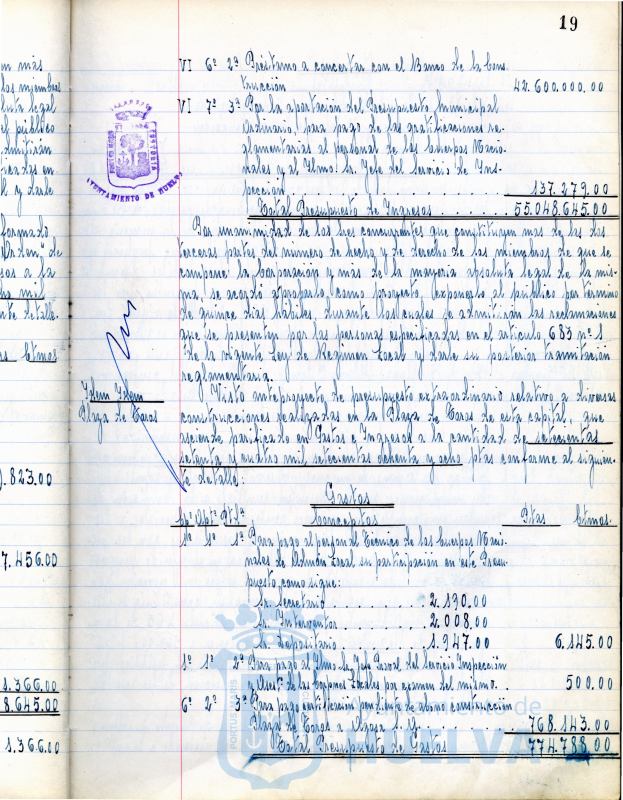 19
VI 6º 2ª Préstamo a concertar con el Banco de la Cons
trucción 42.600.000.00
VI 7º 3ª Por la aportación del Presupuesto Municipal
ordinario, para pago de las gratificaciones re-
glamentarias al personal de los Cuerpos Nacio-
nales y al Iltmo. Sr. Jefe del Servicio de Ins-
pección 137.279.00
Total Presupuesto de Ingresos 55.048.645.00
Por unanimidad de los tres concurrentes que constituyen mas de las dos
terceras partes del número de hecho y de derecho de los miembros de que se
compone la Corporación y mas de la mayoria absoluta legal de la mis-
ma, se acordó aprobarlo como proyecto, exponerlo al público por término
de quince dias hábiles durante los cuales se admitirán las reclamaciones
que se presenten por las personas especificadas en el artículo 683 nº 1
de la vigente Ley de Régimen Local y darle su posterior tramitación
reglamentaria.
Idem Idem
Plaza de Toros
Visto anteproyecto de presupuesto extraordinario relativo a diversas
construcciones realizadas en la Plaza de Toros de esta capital, que
asciende parificado en Gastos e Ingresos a la cantidad de setecientas
setenta y cuatro mil setecientas ochenta y ocho ptas conforme al siguien-
te detalle:
Gastos
Cpº Artº Ptdª Conceptos Ptas Ctmos.
1º 1º 1ª Para pago al personal Técnico de los Cuerpos Nacio-
nales de Admón Local su participación en este Presu-
puesto, como sigue:
Sr. Secretario 2.190.00
Sr. Interventor 2.008.00
Sr. Depositario 1.947.00 6.145.00
1º 1º 2ª Para pago al Iltmo Sr. Jefe Proval. del Servicio Inspección
y Asesª de las Copnes Locales por examen del mismo 500.00
6º 2º 3ª Para pago certificación pendiente de abono construcción
Plaza de Toros a 768.143.00
Total Presupuesto de Gastos 774.788.00
AYUNTAMIENTO DE HUELVA
en mas
los miembros
luta legal
el público
admitirán
ficadas en
l y darle
formado
de
sos a la
mil
nte detalle.
Ctmos
.823.00
7.456.00
1.366.00
8.645.00
1.366.00
PORTUS MARIS
Ayuntamiento de
HUELVA